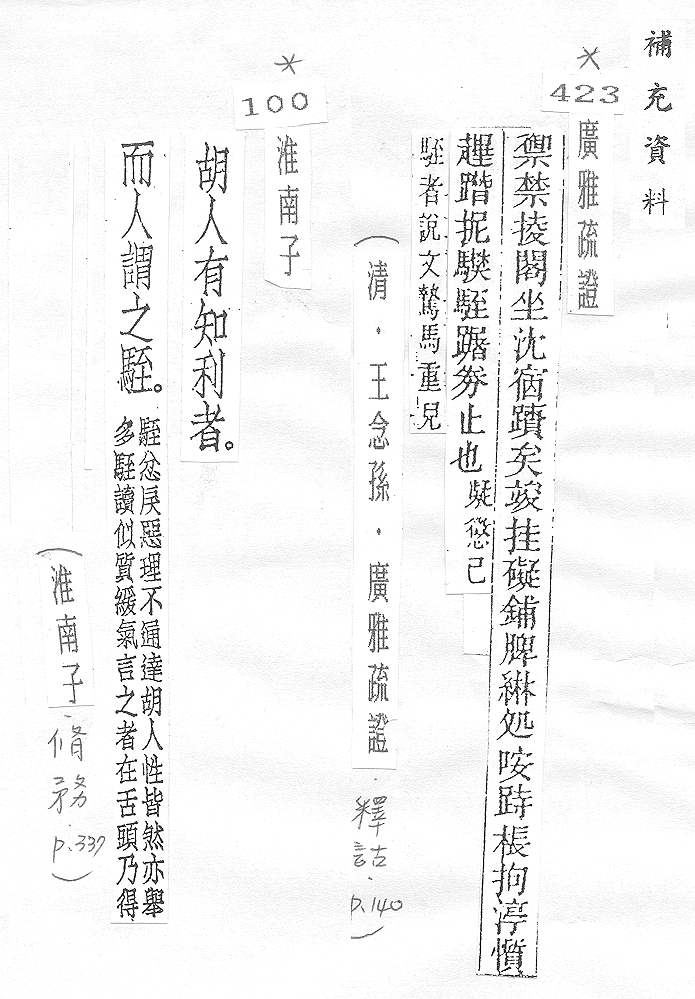 補充資料
*
423
廣雅疏證
禦禁掕閣坐沈宿蹪矣竢挂礙鋪脾綝処咹跱棖拘渟憤
趕踖抳騃駤踞夯止也礙慗己
駤者說文驇馬重皃
(清.王念孫.廣雅疏證.釋詁.p.140)
*
100
淮南子
胡人有知利者。
而人謂之駤。
駤忿戾惡理不通達胡人性皆然亦舉
多駤讀似質緩氣言之者在舌頭乃得
(淮南子.脩務.p.337)